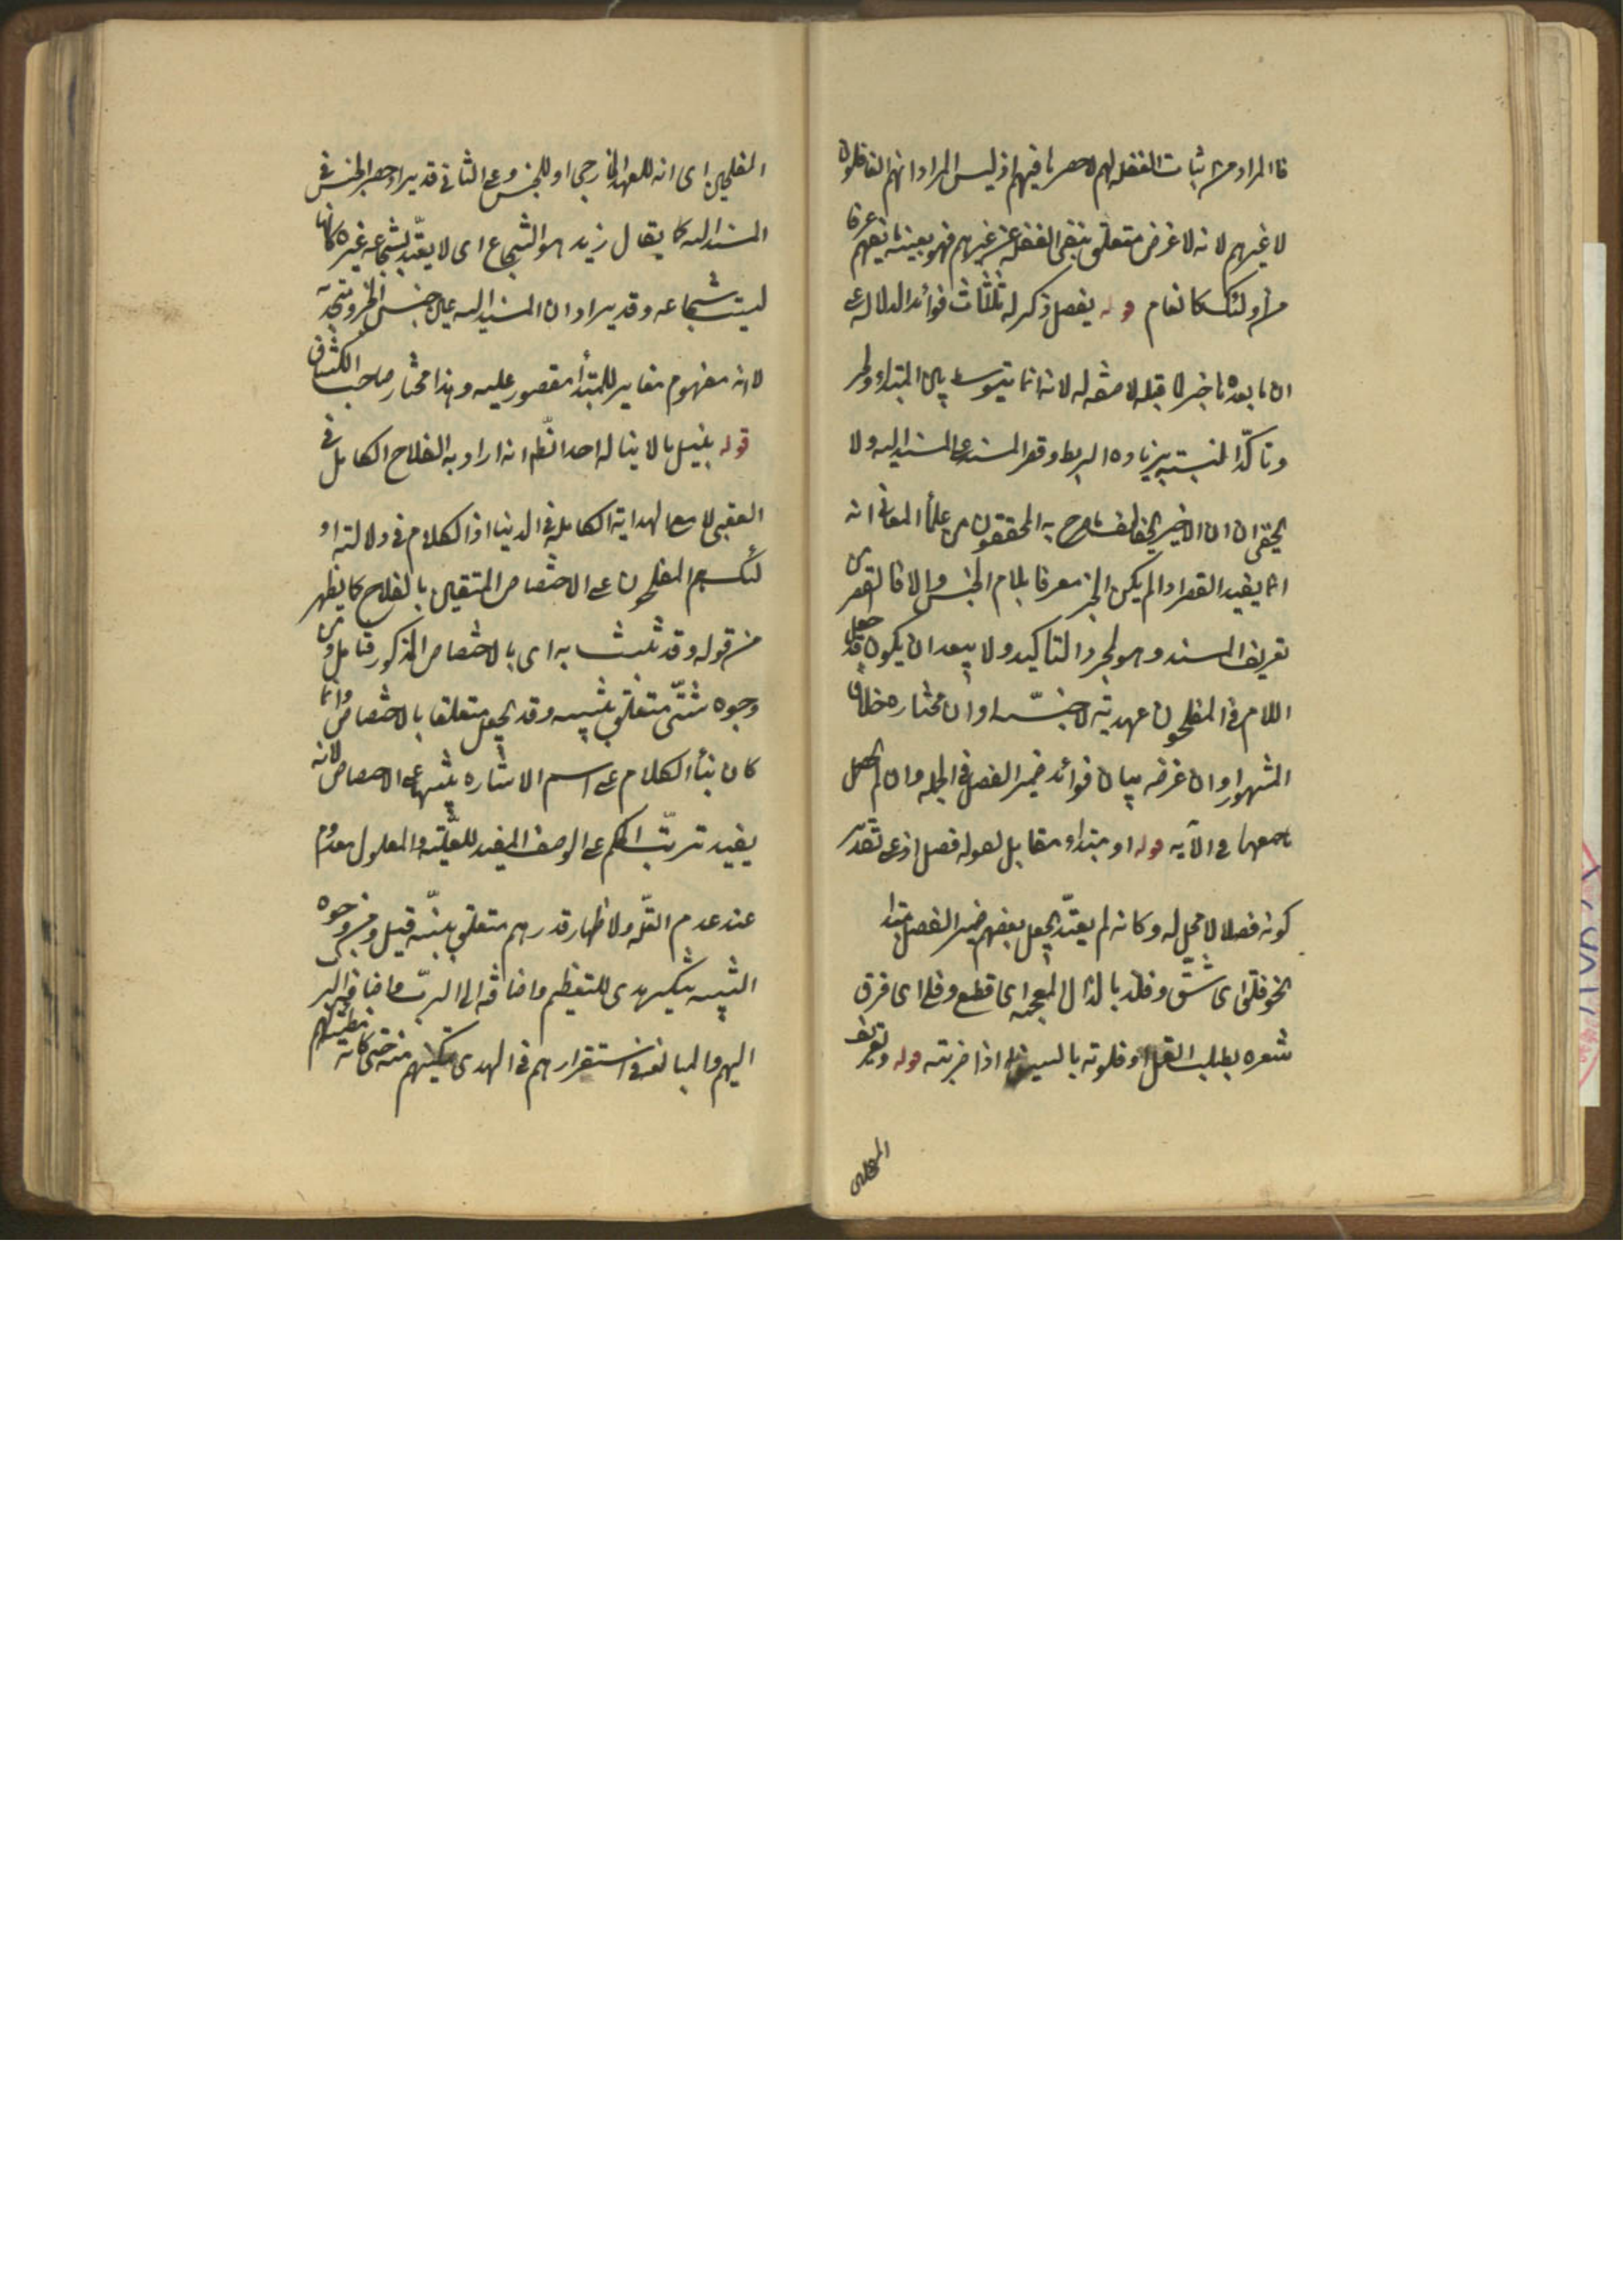 فالمراد من اثبات الغفلة لهم لا حصرها فيهم اذ ليس المراد انهم الغافلون
لا غيرهم لانه لا غرض متعلق بنفى الغفلة عن غيرهم فهو بعينه ما يفهم عرفا
من اولئك كالانعام قوله يفصل ذكر له ثلاث فوائد الدلالة على
ان ما بعده خبر لما قبله لا صفة له لانه انما يتوسط بين المبتدا والخبر
وتاكد النسبة بزيادة الربط وقصر المسند على المسند اليه ولا
يخفى ان الاخير يخالف ما صرح به المحققون من علماء المعانى انه
انما يفيد القصر اذا لم يكن الخبر معرفا بلام الجنس والا فالقصر من
تعريف المسند وهو لمجرد التاكيد ولا يبعد ان يكون قد جعل
اللام فى المفلحون عهدية لا جنسية او ان مختاره خلاف
المشهور او ان غرضه بيان فوائد ضمير الفصل فى الجملة وان لم يحصل
جميعها فى الآية قوله او مبتداء مقابل لقوله فصل اذ على تقدير
كونه فصلا لا محل له وكانه لم يعتد بجعل بعضهم ضمير الفصل مبتدا
نحو فلق اى شق وفلذ بالذال المعجمة اى قطع وفلى اى فرق
شعره بطلب القمل او فلوته بالسيف اذا ضربته قوله وتعريف
المفلحين
المفلحين اى انه للعهد الخارجى او للجنس وعلى الثانى قد يراد حصر الجنس فى
المسند اليه كما يقال زيد هو الشجاع اى لا يعتد بشجاعة غيره كانها
ليست شجاعة وقد يراد ان المسند اليه عين جنس الخبر ومتحد به
لا انه مفهوم مغاير للمبتدأ مقصور عليه وهذا مختار صاحب الكشاف
قوله بنيل ما لا يناله احد الظ انه اراد به الفلاح الكامل فى
العقبى لا مع الهداية الكاملة فى الدنيا اذ الكلام فى دلالة او
لئك هم المفلحون على الاختصاص المتقين بالفلاح كما يظهر
من قوله وقد تشبث به اى بالاختصاص المذكور فتامل قوله من
وجوه شتى متعلق بتنبيه وقد يجعل متعلقا بالاختصاص وانما
كان بناء الكلام على اسم الاشارة تنبيها على الاختصاص لانه
يفيد ترتب الحكم على الوصف المفيد للعلية والمعلول معدوم
عند عدم العلة ولاظهار قدرهم متعلق بنبه قيل ومن وجوه
التنبيه تنكير هدى للتعظيم واضافة الى الرب واضافة الرب
اليهم والمبالغة فى استقرارهم فى الهدى تمكينهم منه حتى كانه مطيتهم